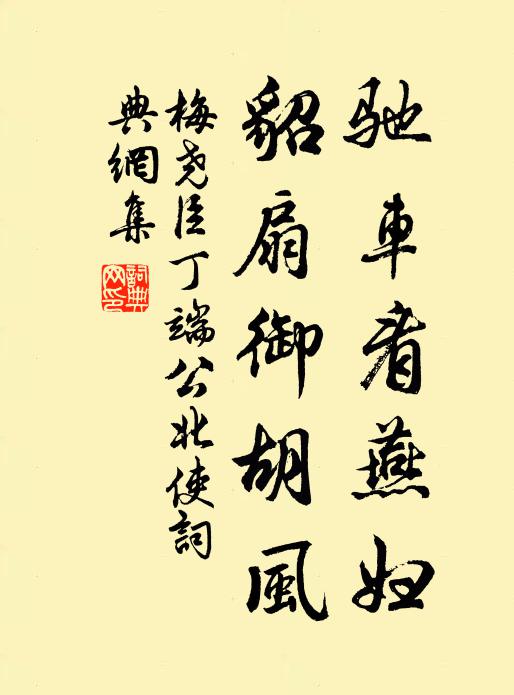 馳車看燕婦
貂扇御胡風
梅堯臣丁端公北使詞
典網集
詞典網印